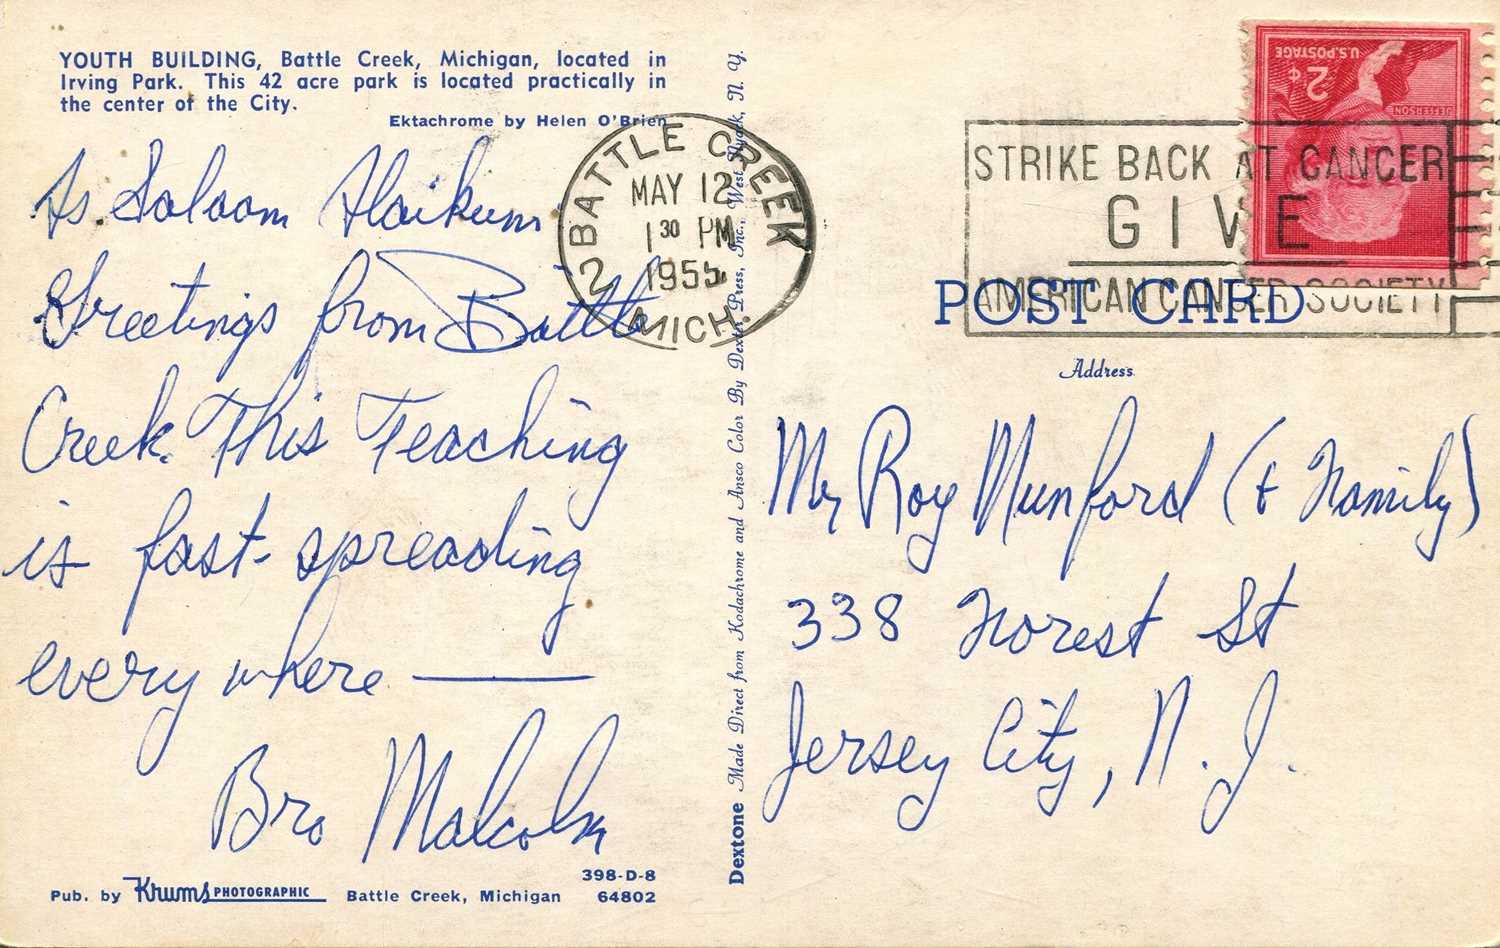 YOUTH BUILDING, Battle Creek, Michigan, located in
Irving Park. This 42 acre park is located practically in
the center of the City.
Ektachrome by Helen O'Brien
As. Salaam Alaikum
Greetings from Battle
Creek. This Teaching
is fast spreading
every where —
Bro Malcolm
Pub. by Krums PHOTOGRAPHIC Battle Creek, Michigan
398-D-8
64802
Dextone Made Direct from Kodachrome and Ansco Color By Dexter Press, Inc., West Nyack, N. Y.
BATTLE CREEK
MAY 12
1 30 PM
1955
2 MICH.
STRIKE BACK AT CANCER
GIVE
AMERICAN CANCER SOCIETY
U.S. POSTAGE
2¢
JEFFERSON
POST CARD
Address
Mr Roy Munford (& Family)
338 Forest St
Jersey City, N. J.